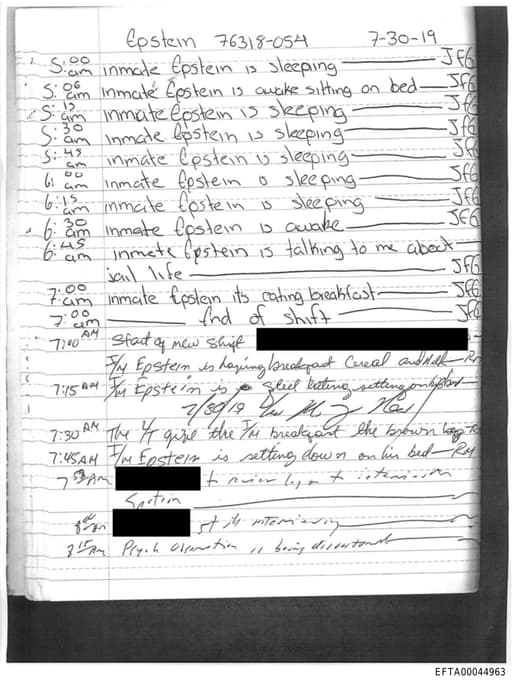 Epstein 76318-054 7-30-19
5:00 am inmate Epstein is sleeping JFG
5:06 am inmate Epstein is awake sitting on bed JFG
5:15 am inmate Epstein is sleeping JFG
5:30 am inmate Epstein is sleeping JFG
5:45 am inmate Epstein is sleeping JFG
6:00 am inmate Epstein is sleeping JFG
6:15 am inmate Epstein is sleeping JFG
6:30 am inmate Epstein is awake JFG
6:45 am inmate Epstein is talking to me about
jail life JFG
7:00 am inmate Epstein its eating breakfast JFG
7:00 am End of shift JFG
7:00 AM Start of new shift
I/M Epstein is having breakfast Cereal and Milk RM
7:15 AM I/M Epstein is setting on his bed
7/30/19
7:30 AM The give the I/M breakfast the brown bag RM
7:45 AM I/M Epstein is setting down on his bed RM
AM to review log + to
Epstein
AM interviewing
8:15 AM Psych Observation is being
EFTA00044963